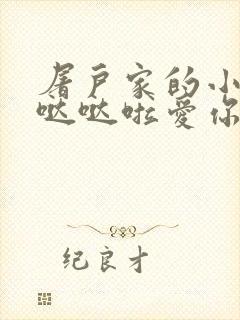 屠户家的小
哒哒啦爱你
纪良才